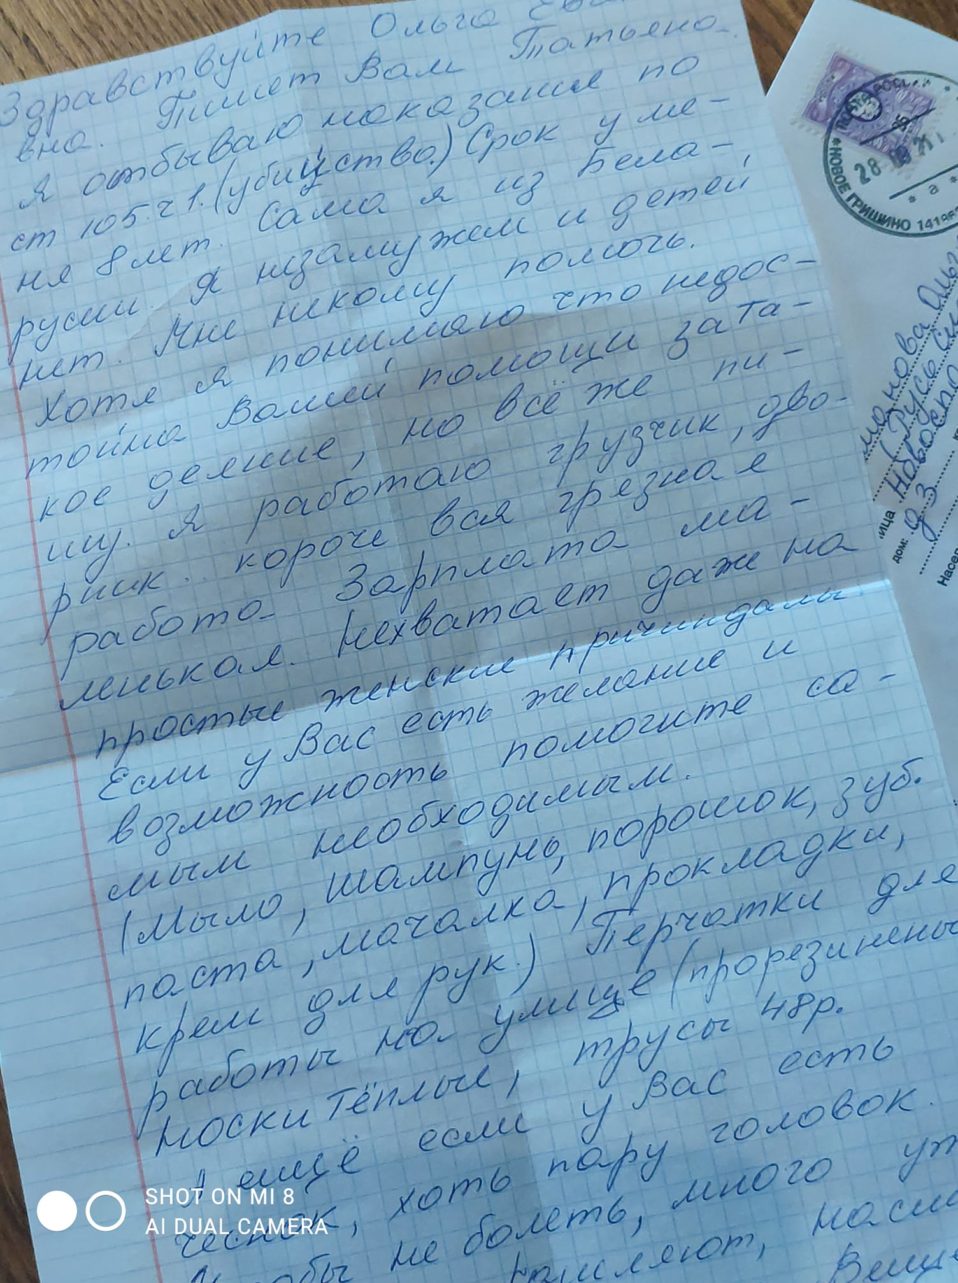 Здравствуйте Ольга
вна. Пишет Вам Татьяна.
Я отбываю наказание по
ст 105.ч1.(убийство.) Срок у ме-
ня 8 лет. Сама я из Бела-
русии. Я незамужем и детей
нет. Мне некому помочь.
Хотя я понимаю что недос-
тойна Вашей помощи за та-
кое деяние, но всё же пи-
шу. Я работаю грузчик, дво-
рник.. короче вся грезная
работа. Зарплата ма-
ленькая. Нехватает даже на
простые женские причиндалы.
Если у Вас есть желание и
возможность помогите са-
мым необходимым.
(Мыло, шампунь, порошок, зуб.
паста, мачалка, прокладки,
крем для рук.) Перчатки для
работы на улице (прорезинены
Носки тёплые, трусы 48р.
И ещё если у Вас есть
чеснок, хоть пару головок.
Чтобы не болеть, много уж
кашляют,
НОВОЕ ГРИШИНО
дом:
д 3